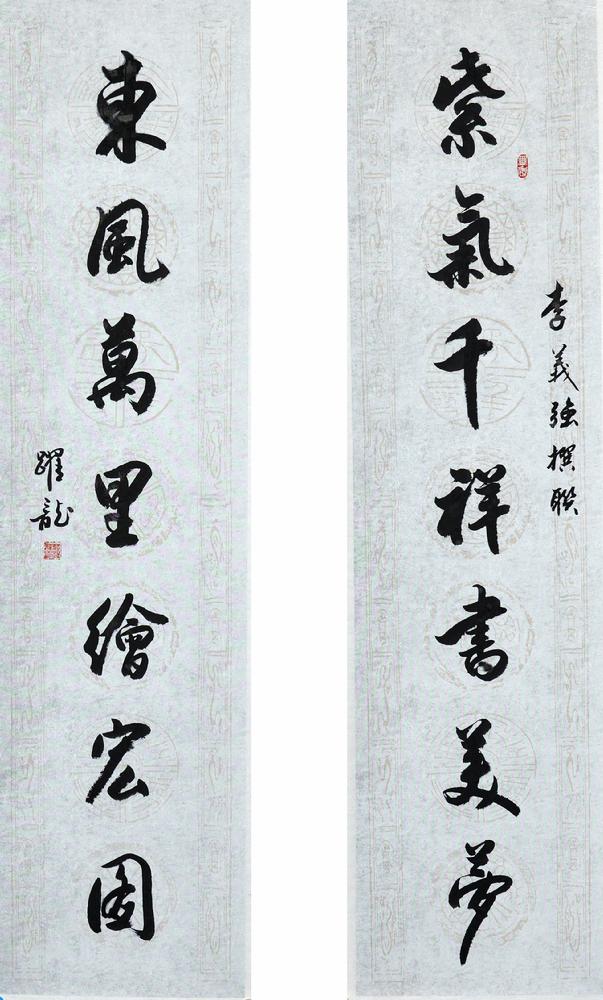 紫氣千祥書美夢
李義强撰聯
東風萬里繪宏图
躍龍